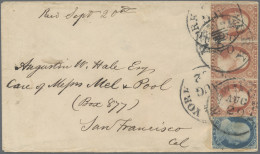 Rec Sept 20th
Augustus W. Hale Esq
Care of Messrs Mel & Pool
(Box 877)
San Francisco
Cal
YORK
AUG